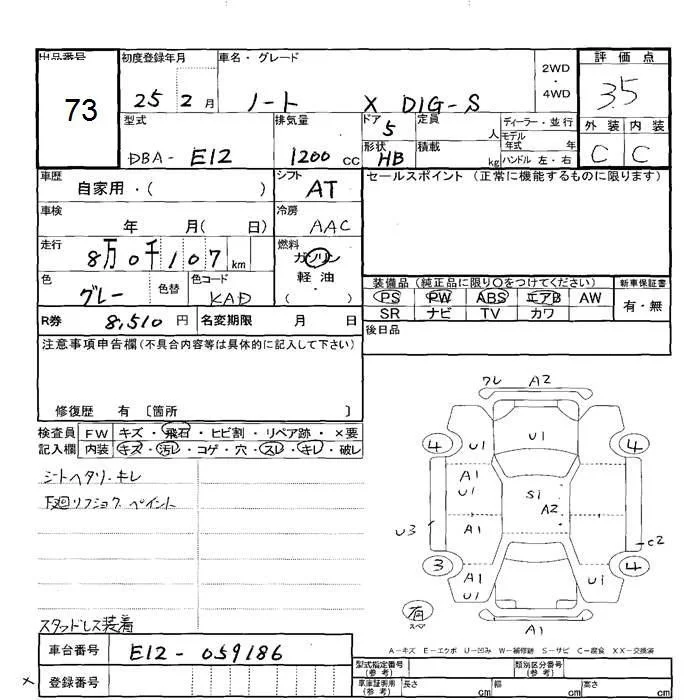 出品番号 初度登録年月 車名・グレード 2WD・4WD 評価点
73 25 2月 ノート X DIG-S 3.5
型式 排気量 ドア 5 定員 人 ディーラー・並行 外装 内装
DBA- E12 1200cc 形状 HB 積載 kg モデル年式 年 ハンドル 左・右 C C
車歴 自家用・( ) シフト AT セールスポイント(正常に機能するものに限ります)
車検 年 月( 日) 冷房 AAC
走行 8万0千107km 燃料 ガソリン 軽油・( )
色 グレー 色替 色コード KAD
装備品(純正品に限り○をつけてください) 新車保証書
PS PW ABS エアB AW 有・無
SR ナビ TV カワ
R券 8,510円 名変期限 月 日 後日品
注意事項申告欄(不具合内容等は具体的に記入して下さい)
修復歴 有 〔箇所 〕
検査員 FW キズ・飛石・ヒビ割・リペア跡・×要
記入欄 内装 キズ・汚レ・コゲ・穴・スレ・キレ・破レ
シートヘタリ・キレ
下廻リフショク ペイント
スタッドレス装着
ワレ A2
4 U1 U1 4
A1
U1 S1
A2
U3 A1 C2
3 A1 4
U1 U1
有
スペア
A1
A-キズ E-エクボ U-凹み W-補修跡 S-サビ C-腐食 XX-交換済
車台番号 E12-059186
× 登録番号
型式指定番号(参考) 類別区分番号(参考)
車庫証明用(参考) 長さ cm 幅 cm 高さ cm